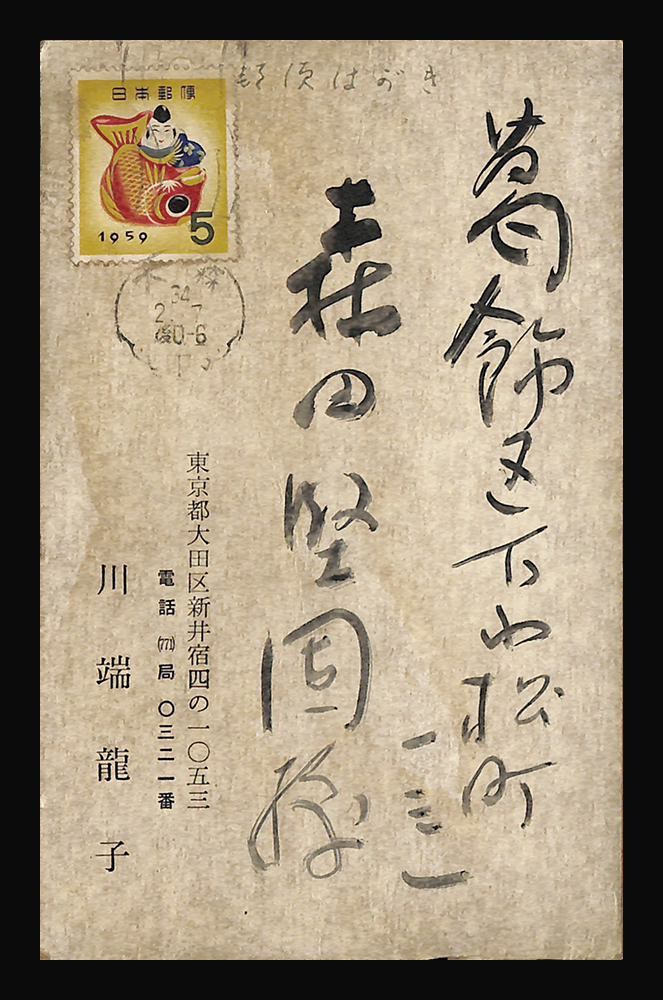 はがき
日本郵便
1959
5
34
2. 7
0-6
葛飾区下小松町
一三一
森田堅固様
東京都大田区新井宿四の一〇五三
電話(771)局〇三二一番
川端龍子